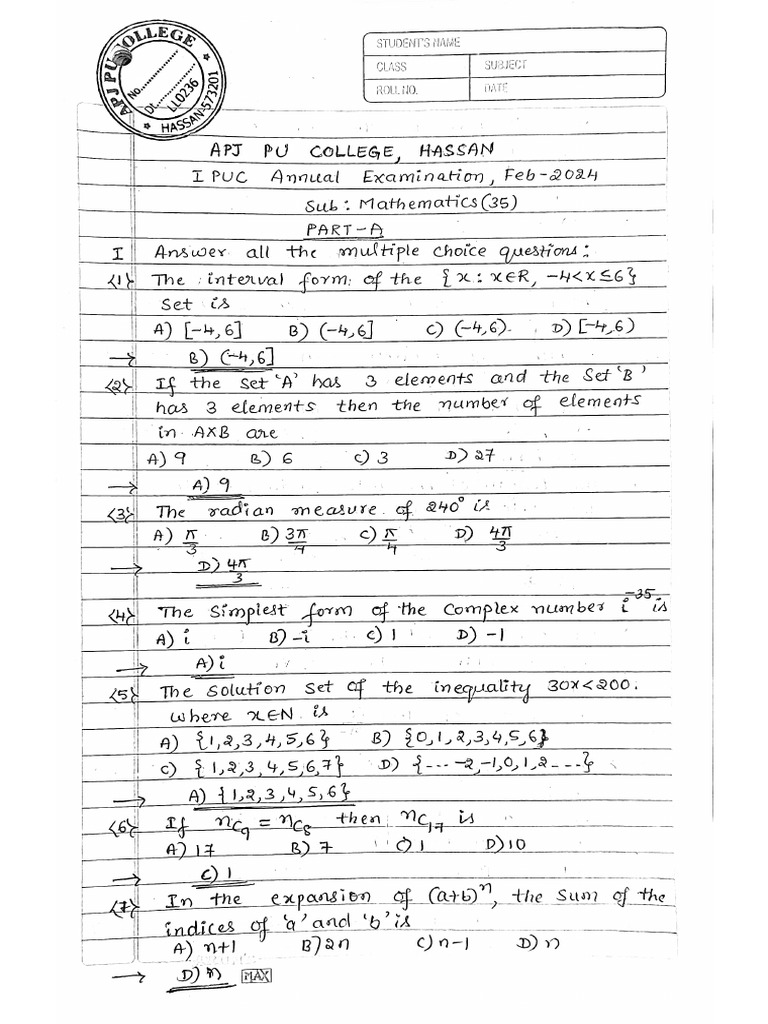 APJ PU COLLEGE
No.
Dt.
LL0236
HASSAN-573201
STUDENT'S NAME
CLASS SUBJECT
ROLL NO. DATE
APJ PU COLLEGE, HASSAN
I PUC Annual Examination, Feb-2024
Sub: Mathematics (35)
PART-A
I Answer all the multiple choice questions:
<1> The interval form of the {x : x∈R, -4<x≤6}
set is
A) [-4,6] B) (-4,6] C) (-4,6). D) [-4,6)
→ B) (-4,6]
<2> If the set 'A' has 3 elements and the set 'B'
has 3 elements then the number of elements
in A×B are
A) 9 B) 6 C) 3 D) 27
→ A) 9
<3> The radian measure of 240° is
A) π/3 B) 3π/4 C) π/4 D) 4π/3
→ D) 4π/3
<4> The simplest form of the complex number i⁻³⁵ is
A) i B) -i C) 1 D) -1
→ A) i
<5> The solution set of the inequality 30x<200.
where x∈N is
A) {1,2,3,4,5,6} B) {0,1,2,3,4,5,6}
C) {1,2,3,4,5,6,7} D) {--- -2,-1,0,1,2---}
→ A) {1,2,3,4,5,6}
<6> If nC₉ = nC₈ then nC₁₇ is
A) 17 B) 7 C) 1 D) 10
→ C) 1
<7> In the expansion of (a+b)ⁿ, the sum of the
indices of 'a' and 'b' is
A) n+1 B) 2n C) n-1 D) n
→ D) n MAX